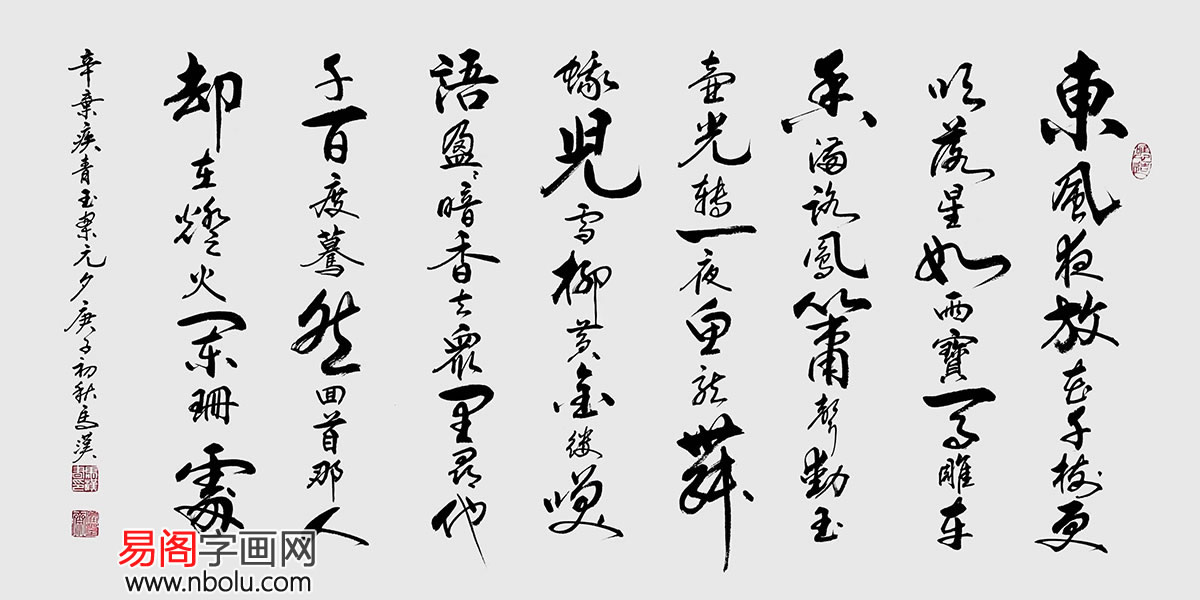 東風夜放花千樹更
吹落星如雨寶馬雕車
香滿路鳳簫聲動玉
壺光轉一夜魚龍舞
蛾兒雪柳黃金縷笑
語盈〻暗香去眾里尋他
千百度驀然回首那人
却在燈火闌珊處
辛棄疾青玉案元夕庚子初秋馬漢
易阁字画网
www.nbolu.com